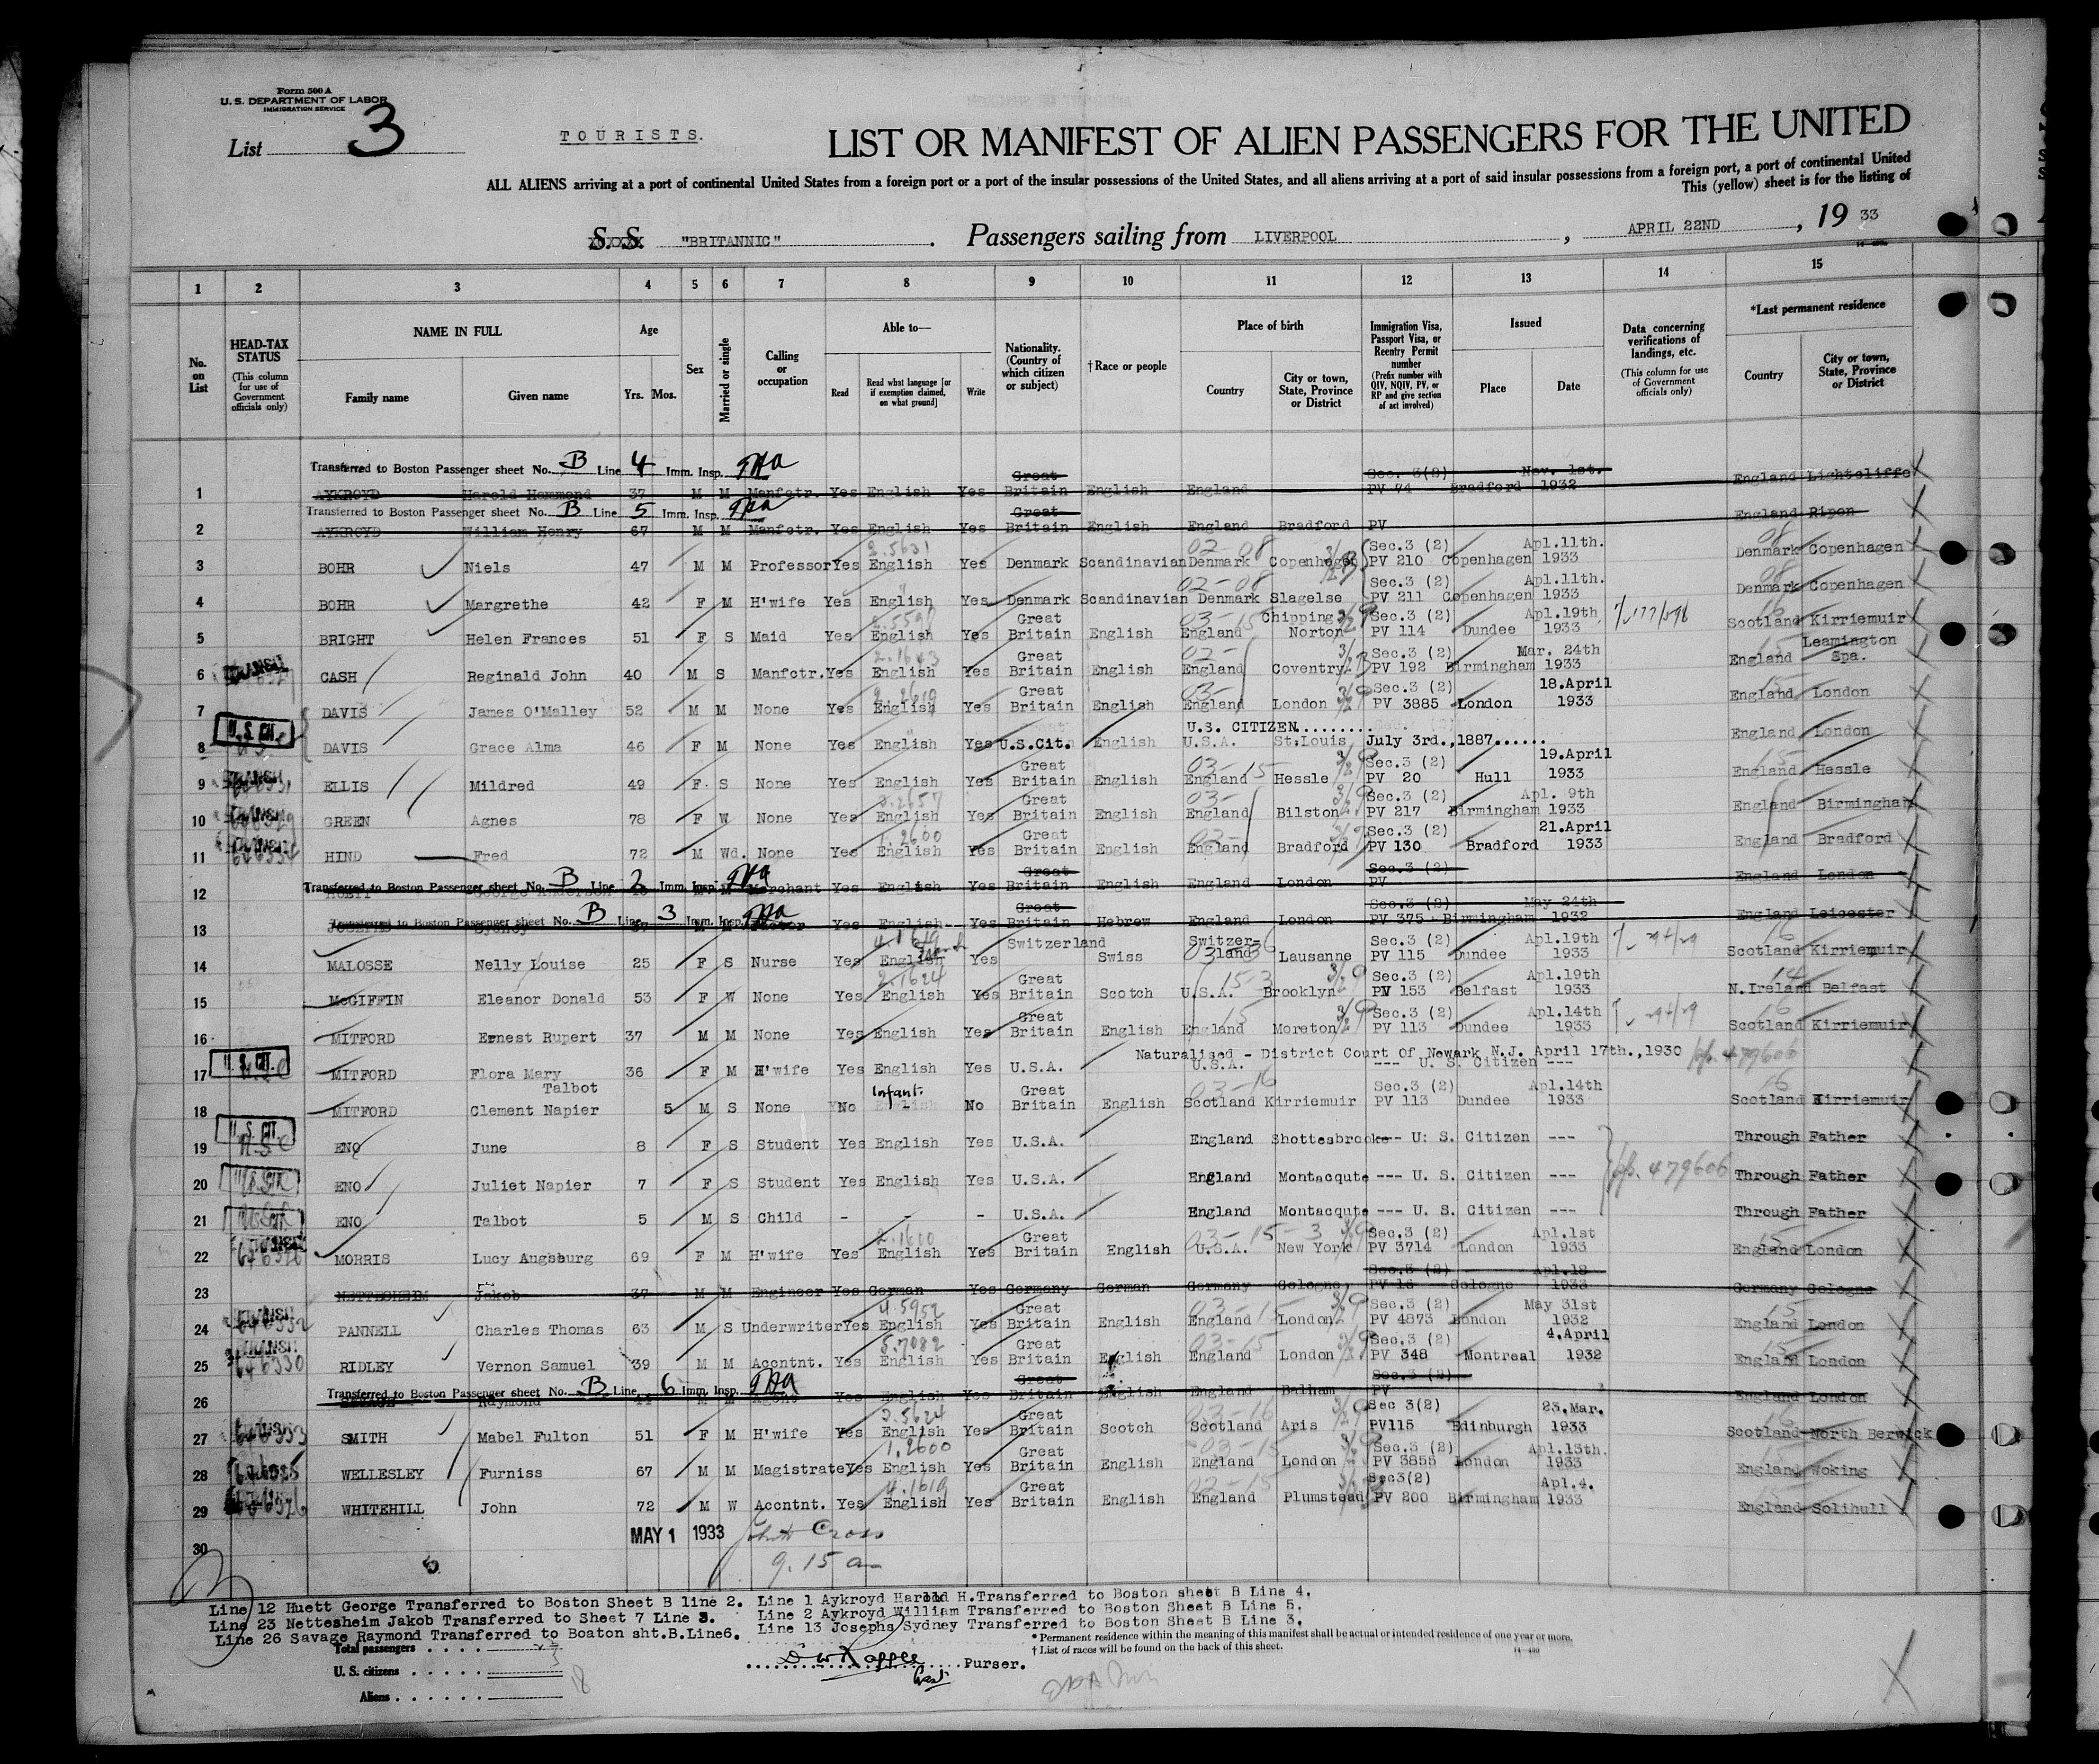 Form 500 A
U. S. DEPARTMENT OF LABOR
IMMIGRATION SERVICE
List 3
TOURISTS.
LIST OR MANIFEST OF ALIEN PASSENGERS FOR THE UNITED
ALL ALIENS arriving at a port of continental United States from a foreign port or a port of the insular possessions of the United States, and all aliens arriving at a port of said insular possessions from a foreign port, a port of continental United
This (yellow) sheet is for the listing of
S. S. "BRITANNIC". Passengers sailing from LIVERPOOL, APRIL 22ND, 19 33
1 2 3 4 5 6 7 8 9 10 11 12 13 14 15
No. on List
HEAD-TAX STATUS (This column for use of Government officials only)
NAME IN FULL Family name Given name
Age Yrs. Mos.
Sex
Married or single
Calling or occupation
Able to— Read Read what language [or if exemption claimed, on what ground] Write
Nationality. (Country of which citizen or subject)
†Race or people
Place of birth Country City or town, State, Province or District
Immigration Visa, Passport Visa, or Reentry Permit number (Prefix number with QIV, NQIV, PV, or RP and give section of act involved)
Issued Place Date
Data concerning verifications of landings, etc. (This column for use of Government officials only)
*Last permanent residence Country City or town, State, Province or District
Transferred to Boston Passenger sheet No. B Line 4 Imm. Insp.
1 AYKROYD Harold Hammond 37 M M Manfctr. Yes English Yes Great Britain English England Sec. 3(2) PV 74 Bradford Nov. 1st. 1932 England Lightcliffe
Transferred to Boston Passenger sheet No. B Line 5 Imm. Insp.
2 AYKROYD William Henry 67 M M Manfctr. Yes English Yes Great Britain English England Bradford PV England Ripon
3 BOHR Niels 47 M M Professor Yes English Yes Denmark Scandinavian Denmark Copenhagen Sec.3 (2) PV 210 Copenhagen Apl.11th. 1933 Denmark Copenhagen
4 BOHR Margrethe 42 F M H'wife Yes English Yes Denmark Scandinavian Denmark Slagelse Sec.3 (2) PV 211 Copenhagen Apl.11th. 1933 Denmark Copenhagen
5 BRIGHT Helen Frances 51 F S Maid Yes English Yes Great Britain English England Chipping Norton Sec.3 (2) PV 114 Dundee Apl.19th 1933 Scotland Kirriemuir
6 CASH Reginald John 40 M S Manfctr. Yes English Yes Great Britain English England Coventry Sec.3 (2) PV 192 Birmingham Mar. 24th 1933 England Leamington Spa.
7 DAVIS James O'Malley 52 M M None Yes English Yes Great Britain English England London Sec.3 (2) PV 3885 London 18.April 1933 England London
U.S. CITIZEN.........
8 U. S. CIT. DAVIS Grace Alma 46 F M None Yes English Yes U.S.Cit. English U.S.A. St.Louis July 3rd.,1887...... England London
9 ELLIS Mildred 49 F S None Yes English Yes Great Britain English England Hessle Sec.3 (2) PV 20 Hull 19.April 1933 England Hessle
10 GREEN Agnes 78 F W None Yes English Yes Great Britain English England Bilston Sec.3 (2) PV 217 Birmingham Apl. 9th 1933 England Birmingham
11 HIND Fred 72 M Wd. None Yes English Yes Great Britain English England Bradford Sec.3 (2) PV 130 Bradford 21.April 1933 England Bradford
Transferred to Boston Passenger sheet No. B Line 2 Imm. Insp.
12 M Merchant Yes English Yes Great Britain English England London Sec.3 (2) PV England London
Transferred to Boston Passenger sheet No. B Line 3 Imm. Insp.
13 JOSEPHS Sydney 37 M M Yes English Yes Great Britain Hebrew England London Sec.3 (2) PV 375 Birmingham May 24th 1932 England Leicester
14 MALOSSE Nelly Louise 25 F S Nurse Yes English Yes Switzerland Swiss Switzerland Lausanne Sec.3 (2) PV 115 Dundee Apl.19th 1933 Scotland Kirriemuir
15 McGIFFIN Eleanor Donald 53 F W None Yes English Yes Great Britain Scotch U.S.A. Brooklyn Sec.3 (2) PV 153 Belfast Apl.19th 1933 N.Ireland Belfast
16 MITFORD Ernest Rupert 37 M M None Yes English Yes Great Britain English England Moreton Sec.3 (2) PV 113 Dundee Apl.14th 1933 Scotland Kirriemuir
Naturalised - District Court Of Newark N.J. April 17th.,1930
17 U. S. CIT. MITFORD Flora Mary Talbot 36 F M H'wife Yes English Yes U.S.A. U.S.A. --- U. S. Citizen ---
18 MITFORD Clement Napier 5 M S None No Infant. No Great Britain English Scotland Kirriemuir Sec.3 (2) PV 113 Dundee Apl.14th 1933 Scotland Kirriemuir
19 U. S. CIT. ENO June 8 F S Student Yes English Yes U.S.A. England Shottesbrooke-- U. S. Citizen --- Through Father
20 ENO Juliet Napier 7 F S Student Yes English Yes U.S.A. England Montacqute --- U. S. Citizen --- 479606 Through Father
21 ENO Talbot 5 M S Child - - - U.S.A. England Montacqute --- U. S. Citizen --- Through Father
22 MORRIS Lucy Augsburg 69 F M H'wife Yes English Yes Great Britain English U.S.A. New York Sec.3 (2) PV 3714 London Apl.1st 1933 England London
23 NETTESHEIM Jakob 37 M M Engineer Yes German Yes Germany German Germany Cologne Sec.3 (2) PV 18 Cologne Apl.18 1933 Germany Cologne
24 PANNELL Charles Thomas 63 M S Underwriter Yes English Yes Great Britain English England London Sec.3 (2) PV 4873 London May 31st 1932 England London
25 RIDLEY Vernon Samuel 39 M M Accntnt. Yes English Yes Great Britain English England London Sec.3 (2) PV 348 Montreal 4.April 1932 England London
Transferred to Boston Passenger sheet No. B Line 6 Imm. Insp.
26 Raymond 44 M M Agent Yes English Yes Great Britain English England Balham Sec.3 (2) PV England London
27 SMITH Mabel Fulton 51 F M H'wife Yes English Yes Great Britain Scotch Scotland Aris Sec 3(2) PV115 Edinburgh 23.Mar. 1933 Scotland North Berwick
28 WELLESLEY Furniss 67 M M Magistrate Yes English Yes Great Britain English England London Sec.3 (2) PV 3855 London Apl.13th. 1933 England Woking
29 WHITEHILL John 72 M W Accntnt. Yes English Yes Great Britain English England Plumstead Sec3(2) PV 200 Birmingham Apl.4. 1933 England Solihull
30 MAY 1 1933
9.15 am
Line 12 Huett George Transferred to Boston Sheet B line 2. Line 1 Aykroyd Harold H.Transferred to Boston sheet B Line 4.
Line 23 Nettesheim Jakob Transferred to Sheet 7 Line 3. Line 2 Aykroyd William Transferred to Boston Sheet B Line 5.
Line 26 Savage Raymond Transferred to Boaton sht.B.Line6. Line 13 Josephs Sydney Transferred to Boston Sheet B Line 3.
* Permanent residence within the meaning of this manifest shall be actual or intended residence of one year or more.
† List of races will be found on the back of this sheet.
Total passengers
U. S. citizens
Aliens
Purser.